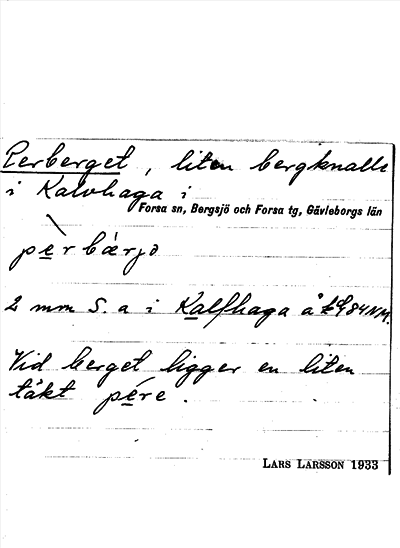 Perberget, liten bergknalle
i Kalvhaga i
Forsa sn, Bergsjö och Forsa tg, Gävleborgs län
pèrbærjə
2 mm S. a i Kalfhaga å 84 NM.
Vid berget ligger en liten
täkt père.
LARS LARSSON 1933